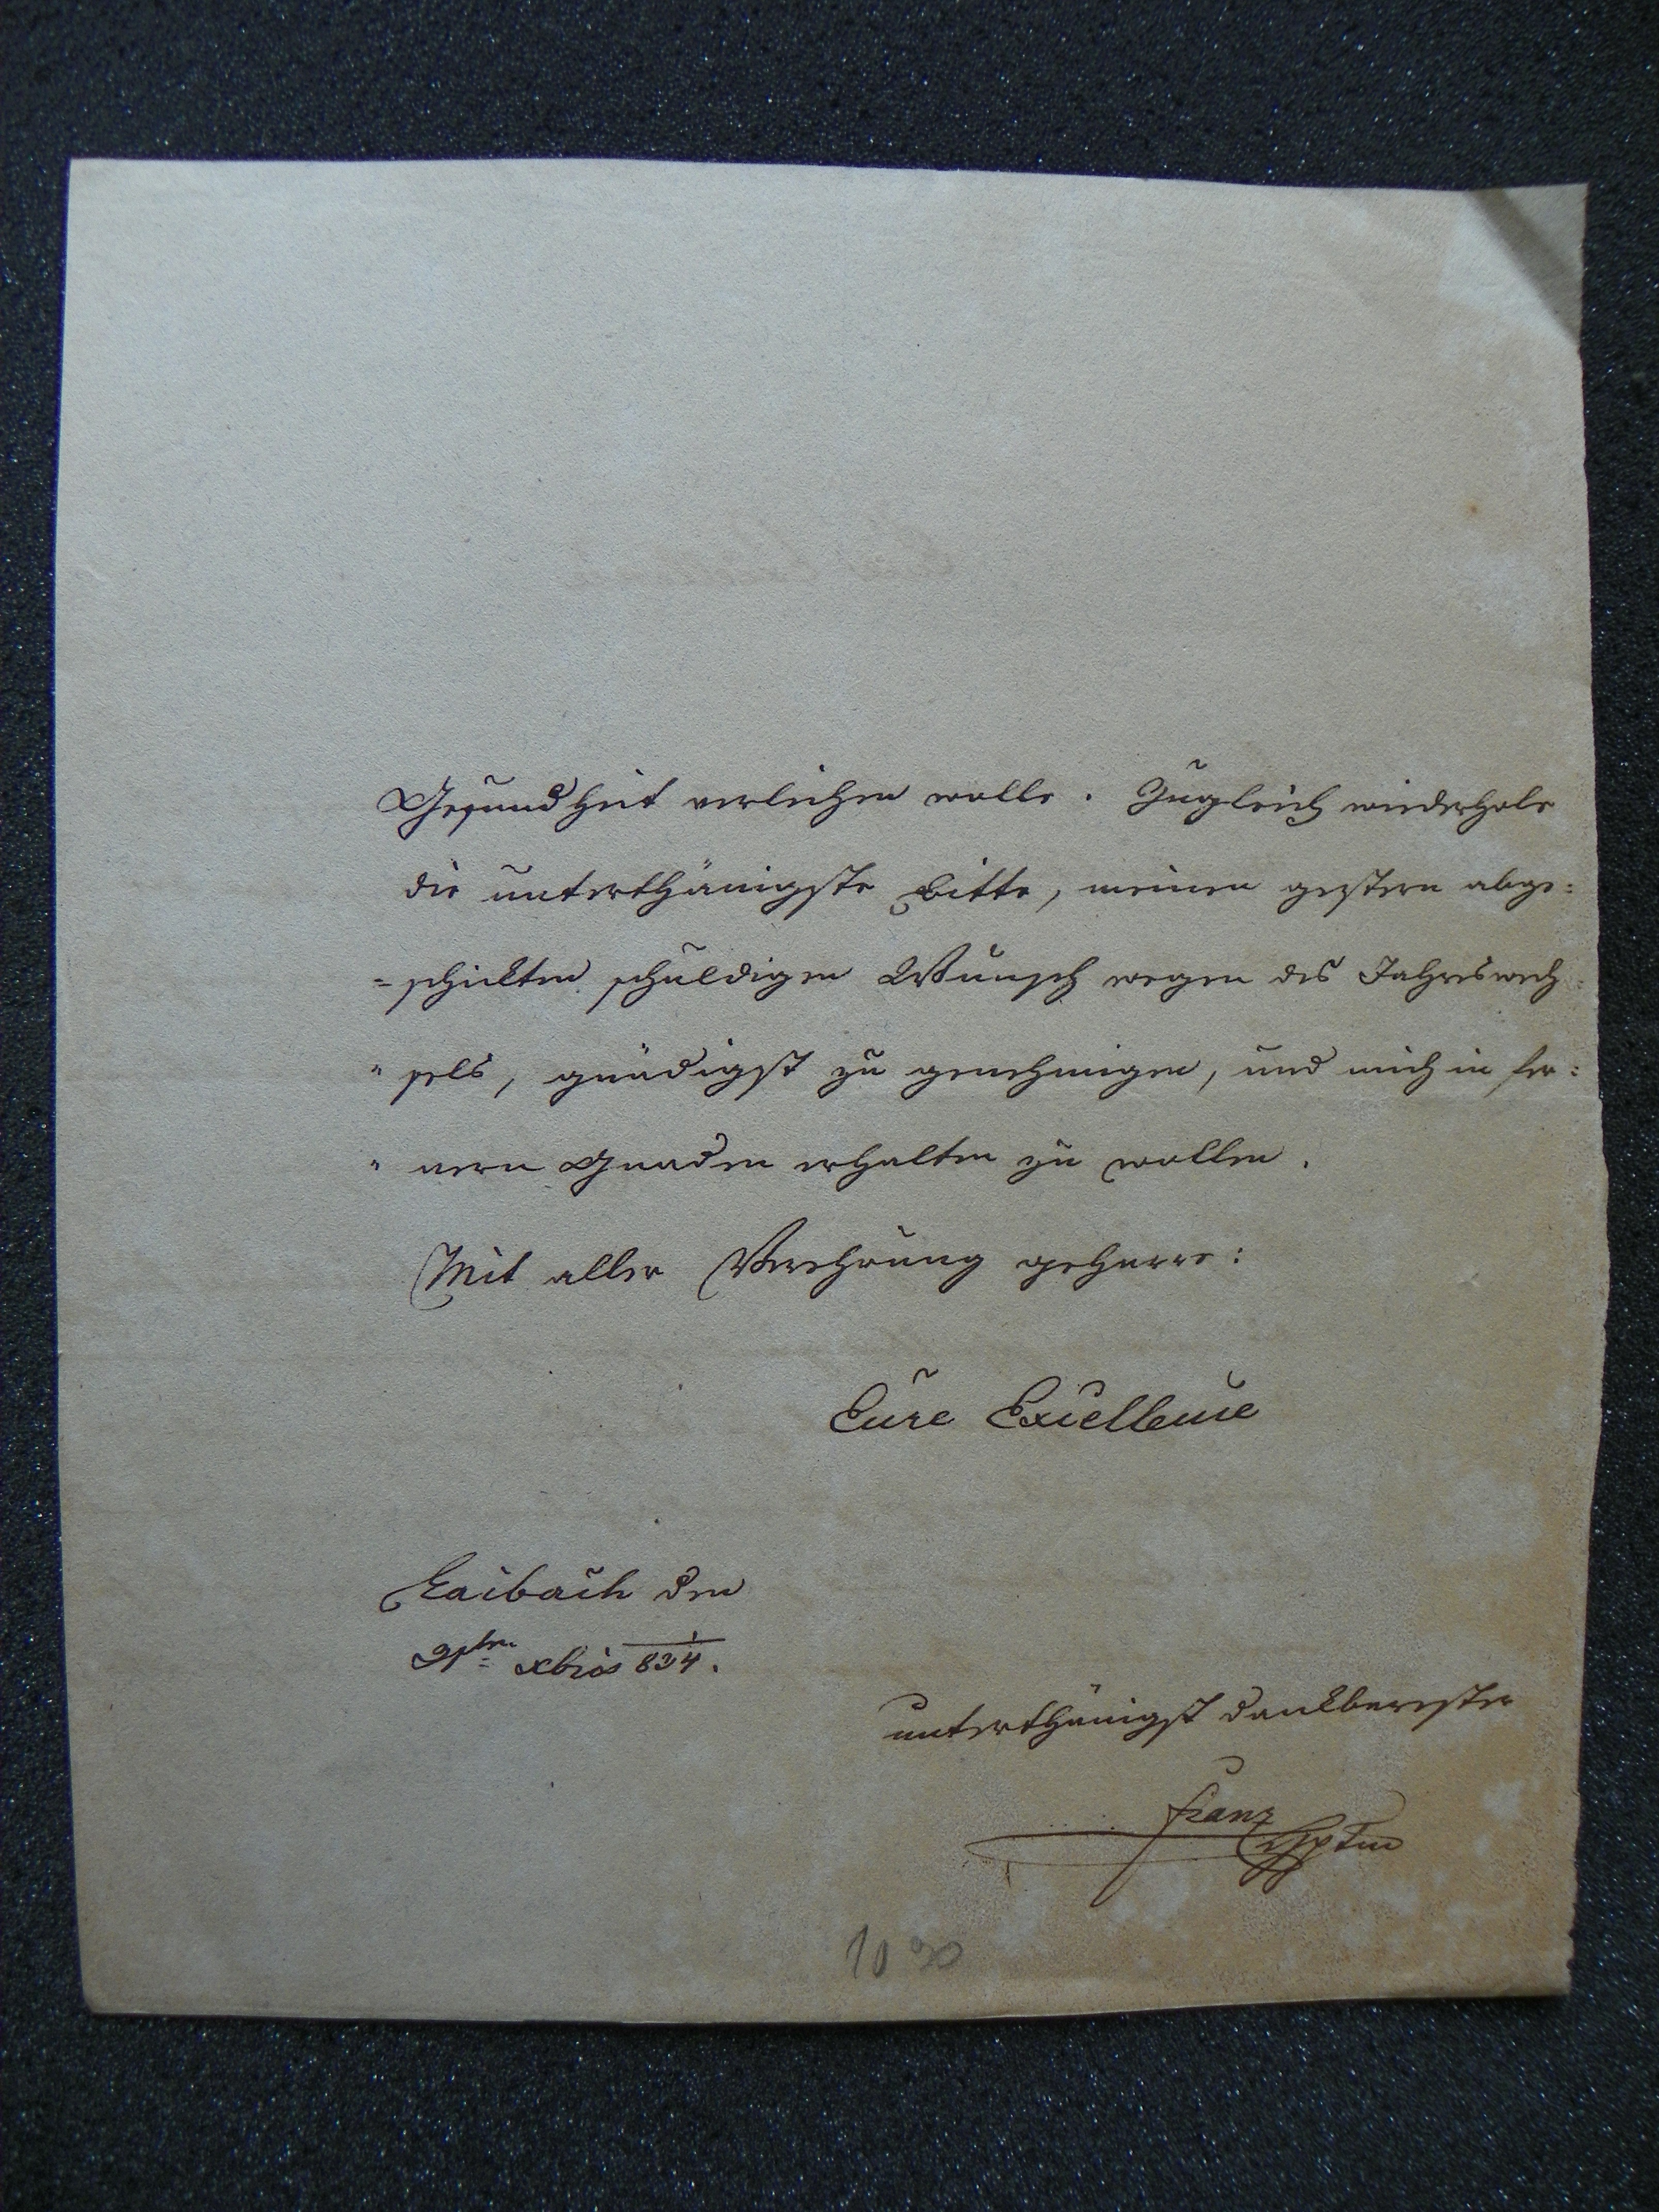 Gesundheit verleihen wolle. Zugleich wiederhole
die unterthänigste Bitte, meinen gestern abge=
=schickten schuldigen Wunsch wegen des Jahreswech=
" sels, gnädigst zu genehmigen, und mich in fer=
" nern Gnaden erhalten zu wollen.
Mit aller Verehrung geharre:
Eure Excellence
Laibach den
xbris 834.
unterthänigst dankbarester
Franz